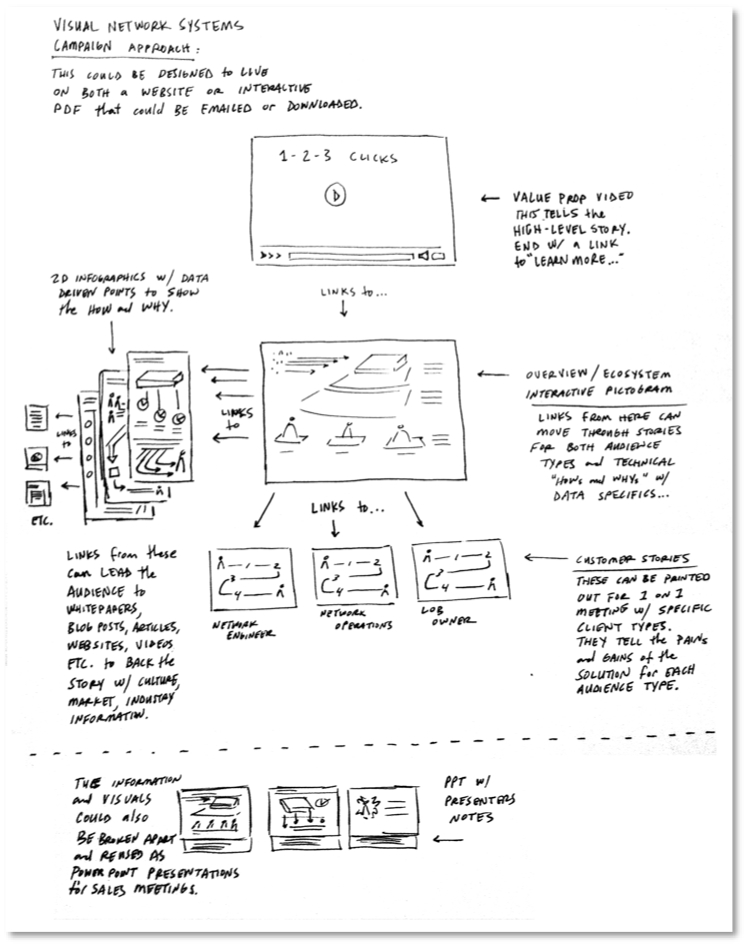 VISUAL NETWORK SYSTEMS
CAMPAIGN APPROACH:
THIS COULD BE DESIGNED to LIVE
ON BOTH a WEBSITE OR INTERACTIVE
PDF that COULD BE EMAILED or DOWNLOADED.
1-2-3 CLICKS
VALUE PROP VIDEO
THIS TELLS the
HIGH-LEVEL STORY.
END W/ A LINK
to "LEARN MORE..."
LINKS to...
2D INFOGRAPHICS W/ DATA
DRIVEN POINTS to SHOW
the HOW and WHY.
LINKS
to
LINKS
to
ETC.
OVERVIEW / ECOSYSTEM
INTERACTIVE PICTOGRAM
LINKS FROM HERE CAN
MOVE THROUGH STORIES
FOR BOTH AUDIENCE
TYPES and TECHNICAL
"HOWs and WHYs" W/
DATA SPECIFICS...
LINKS to...
1 2
3
4
NETWORK
ENGINEER
1 2
3
4
NETWORK
OPERATIONS
1 2
3
4
LOB
OWNER
CUSTOMER STORIES
THESE CAN BE PRINTED
OUT FOR 1 ON 1
MEETING W/ SPECIFIC
CLIENT TYPES.
THEY TELL the PAINS
and GAINS of the
SOLUTION for EACH
AUDIENCE TYPE.
LINKS from these
Can LEAD the
AUDIENCE to
WHITEPAPERS,
BLOG POSTS, ARTICLES,
WEBSITES, VIDEOS
ETC. to BACK the
STORY W/ CULTURE,
MARKET, INDUSTRY
INFORMATION.
THE INFORMATION
and VISUALS
COULD also
BE BROKEN APART
and REUSED AS
POWERPOINT PRESENTATIONS
for SALES MEETINGS.
PPT W/
PRESENTERS
NOTES